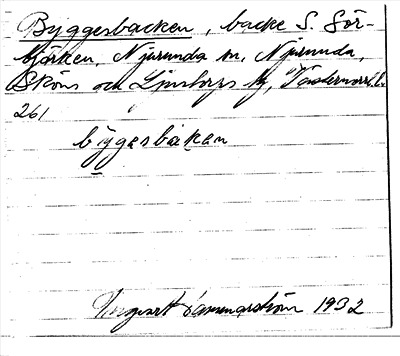 Byggesbacken, backe S. Sör-
björken, Njurunda sn, Njurunda,
Sköns och Ljustorps tg, Västernorrl. l.
261
byggesbakan
Ingvart Hammarström 1932